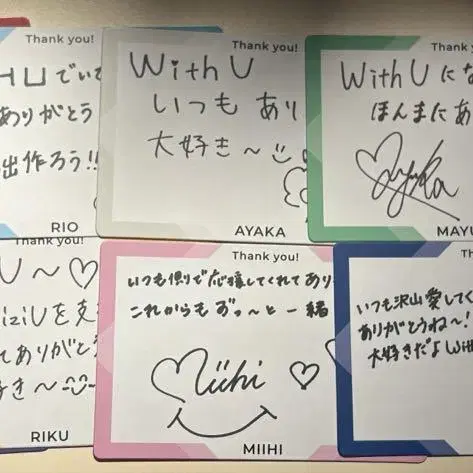 Thank you!
HUでいて
ありがとう
出作ろう!!
RIO
Thank you!
With U
いつも あり
大好き〜
AYAKA
Thank y
With Uにな
ほんまにあ
Mayuka
MAYU
Thank you!
U〜♡
iziUを支
てありがと
き〜
RIKU
Thank you!
いつも側りで応援してくれてあり
これからもずっ〜と一緒
Miihi ♡
MIIHI
いつも沢山愛してく
ありがとうね〜!
大好きだよ With